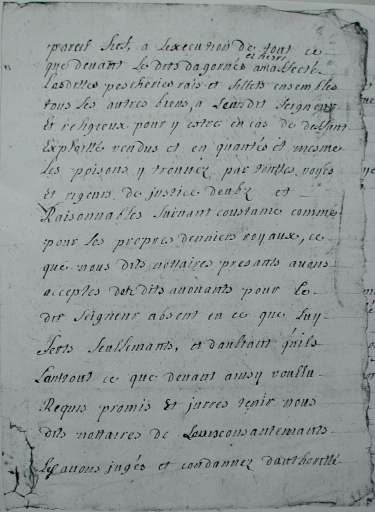 pareil sief, a Lexecution de tout ce
que devant Le dits dagornes
et henri
a affecté
Lesdittes pescheries rais et fillets ensembles
tous ses autres biens, a Lesdit Seigneur
Et religieux pour y estre en cas de deffaut
Exploitté vendus et en quantés et mesme
Les poisons y trouvez par touttes voyes
et rigeurs de justice deubz et
Raisonnables suivant coustume comme
pour les propres denniers royaux, ce
que nous dits nottaires presants avons
acceptes dits avouants pour Le
dit Seigneur absent en ce que Luy
serts seullemants, et daultant quils
Lont ce que devant ainsy voullu
Requis promis Et jurres tenir nous
dits nottaires de Leurs consantemants
Les avons jugés et condannez dauthoritté